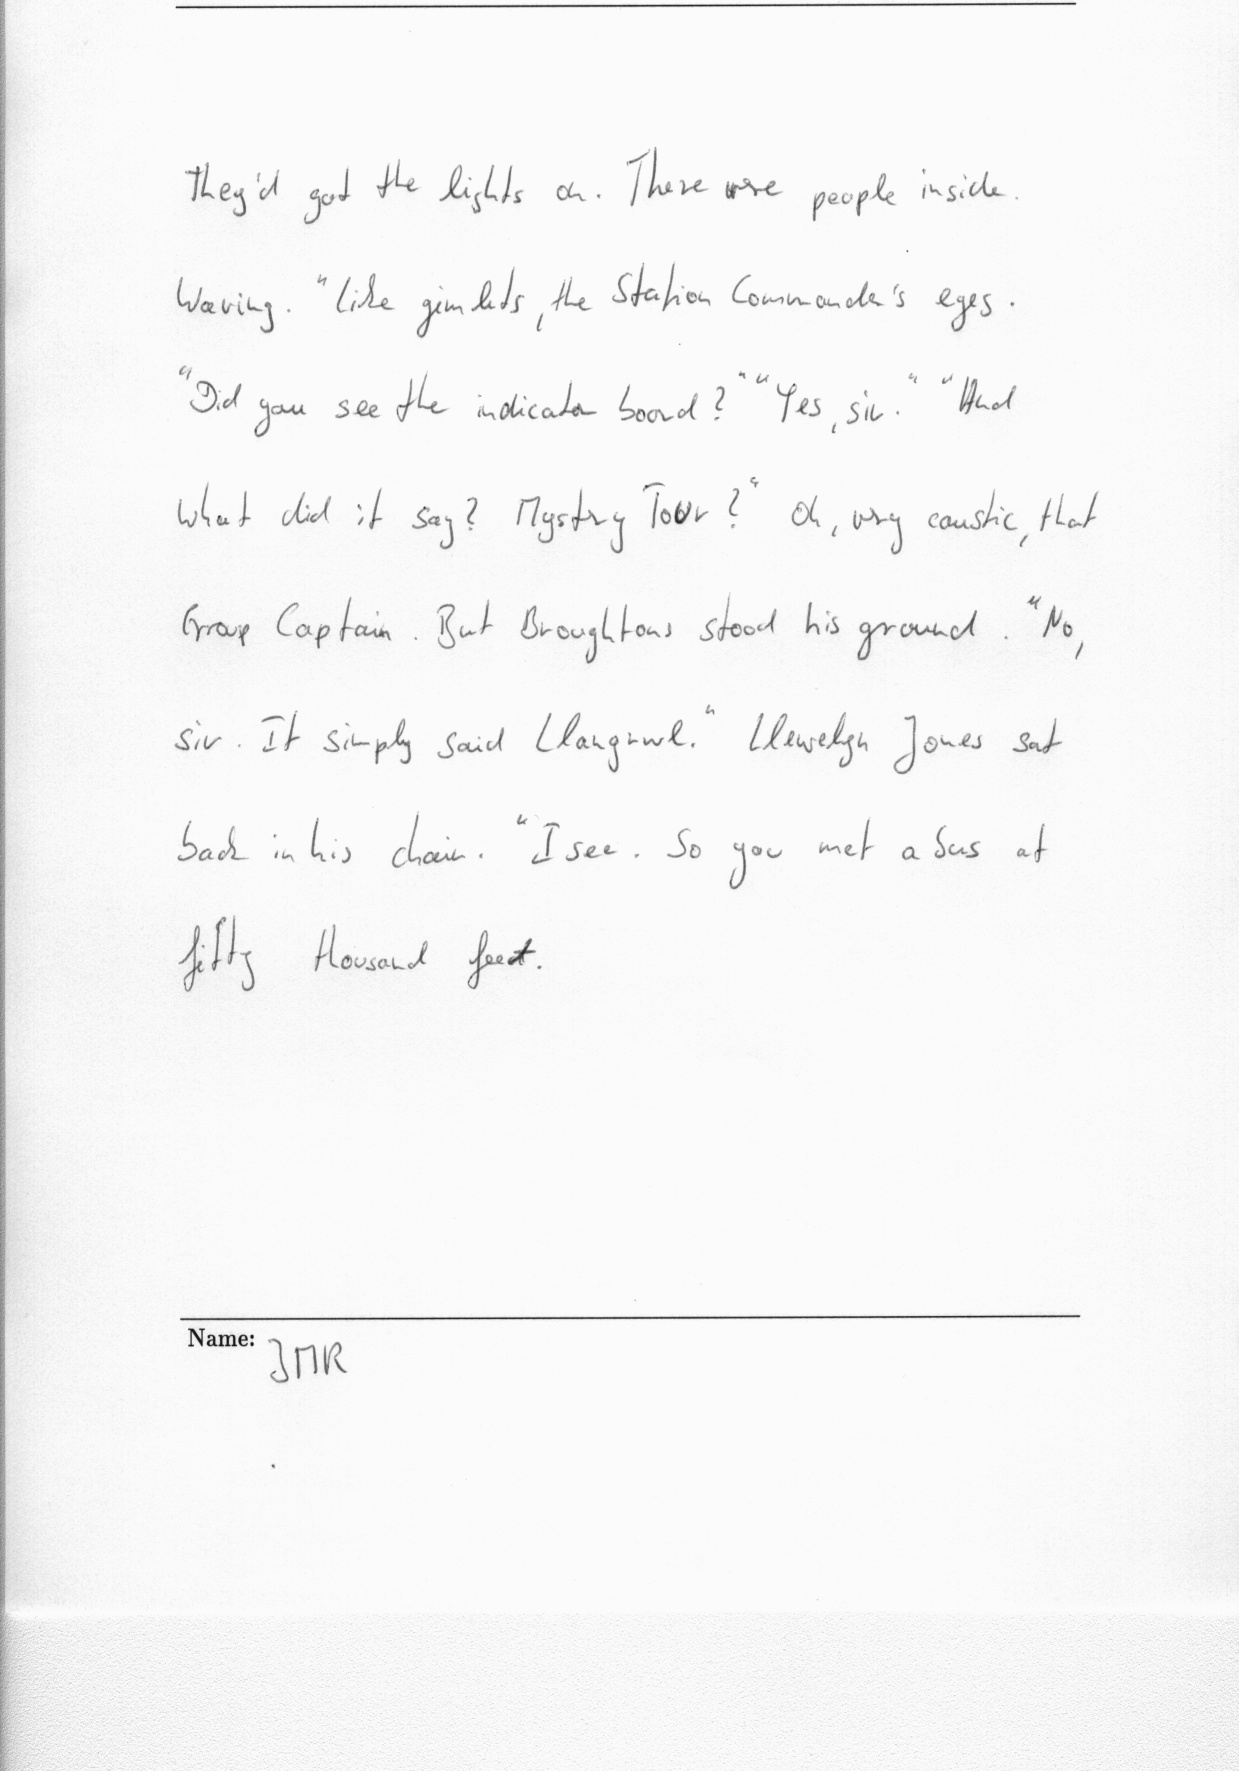 They'd got the lights on. There were people inside.
Waving. "Like gimlets, the Station Commander's eyes.
"Did you see the indicator board?" "Yes, sir." "And
what did it say? Mystry Tour?" Oh, very caustic, that
Group Captain. But Broughtons stood his ground. "No,
sir. It simply said Llangrwl." Llewelyn Jones sat
back in his chair. "I see. So you met a bus at
fifty thousand feet.
Name: JMR